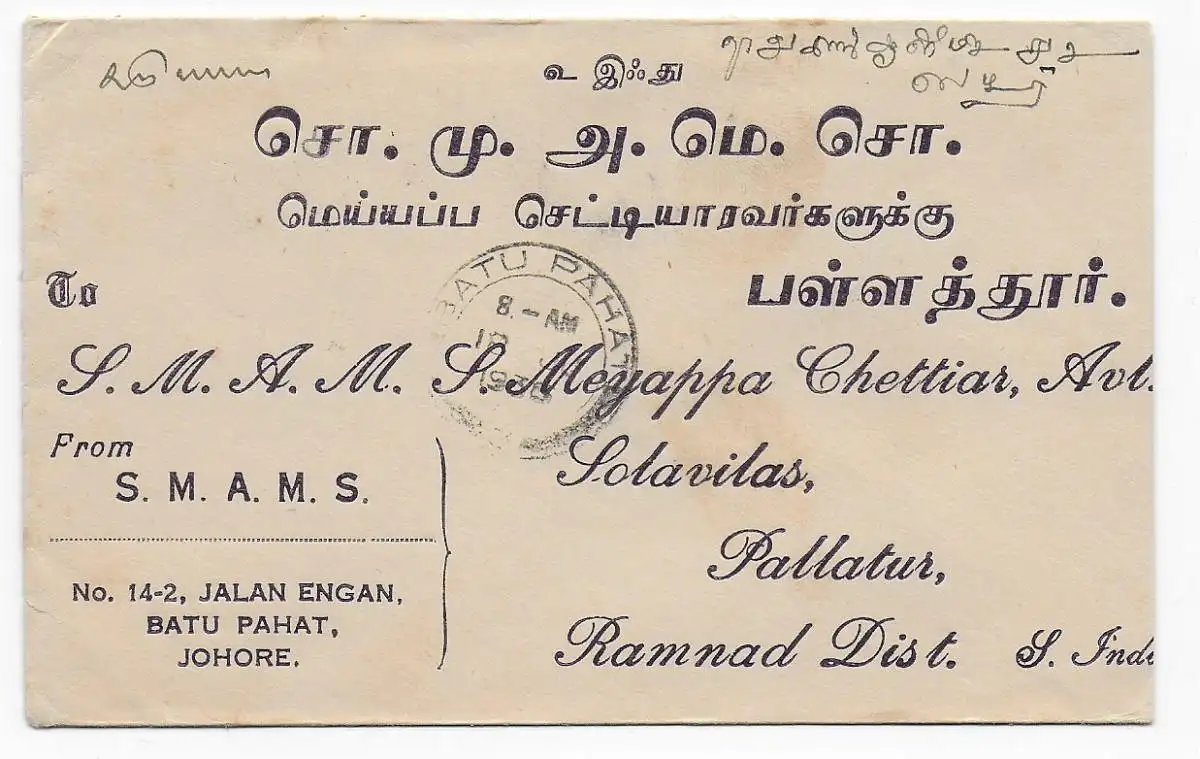 உ இஃது
சொ. மு. அ. மெ. சொ.
மெய்யப்ப செட்டியாரவர்களுக்கு
பள்ளத்தூர்.
To
S. M. A. M. S. Meyappa Chettiar, Avl.
Solavilas,
Pallatur,
Ramnad Dist. S. Ind
From
S. M. A. M. S.
No. 14-2, JALAN ENGAN,
BATU PAHAT,
JOHORE.
BATU PAHAT
8.-AM